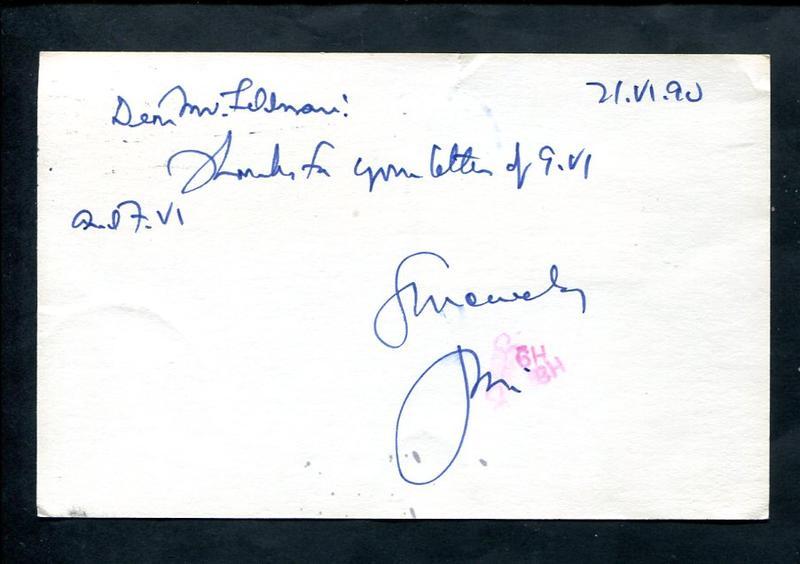 21.VI.90
Dear Mr. Feldman:
Thanks for your letter of 9.VI
and 7.VI
Sincerely
BH
BH